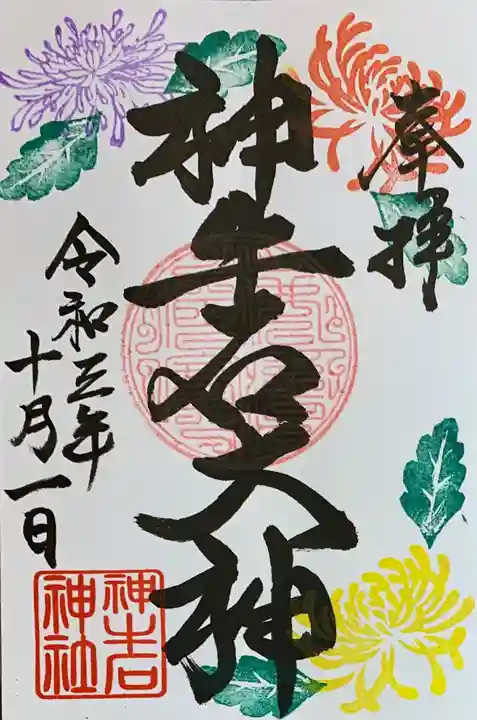 奉拝
神 大神
令和三年
十月一日
神
神社